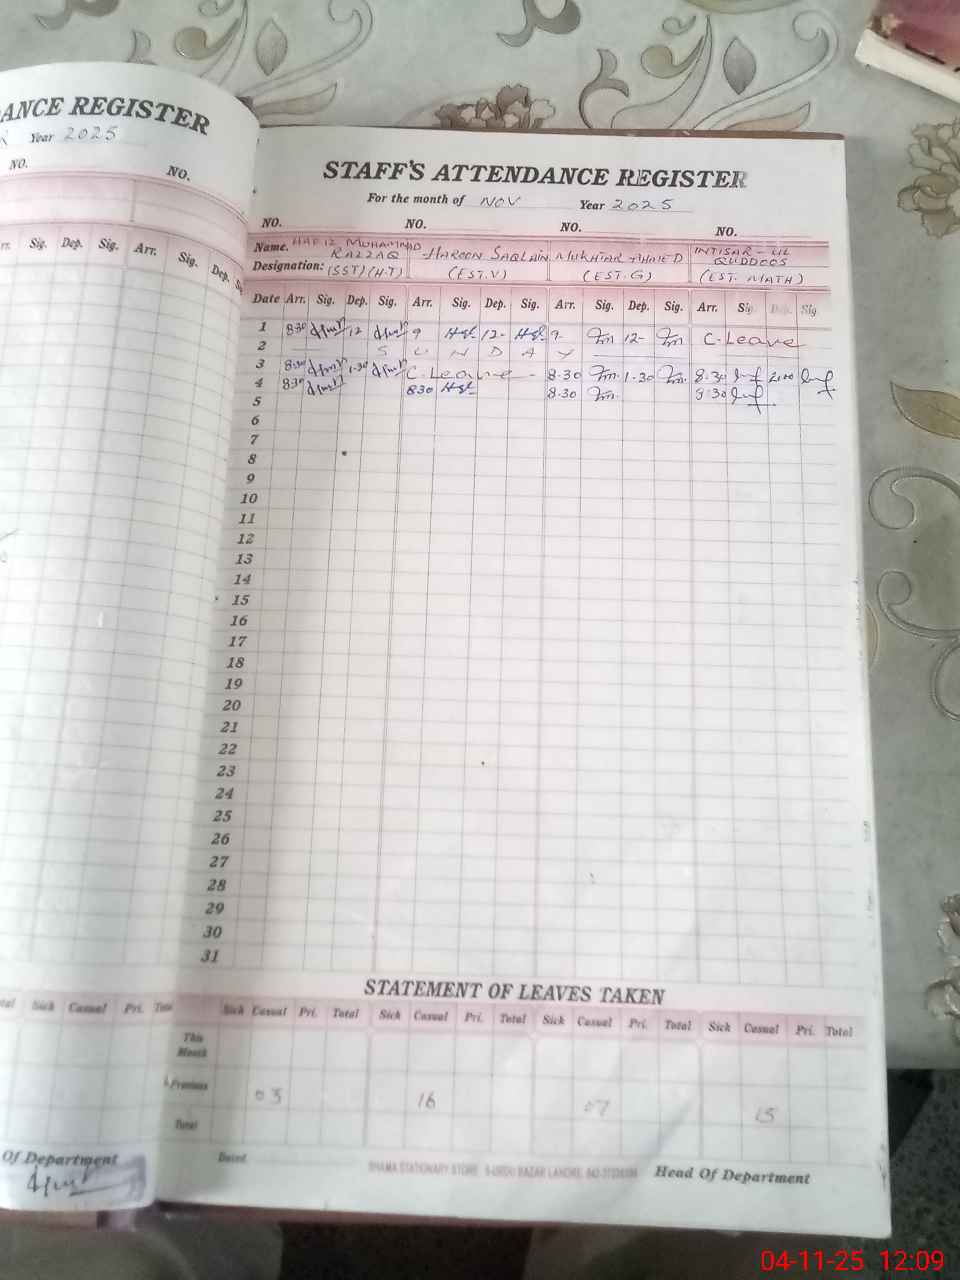 ANCE REGISTER
Year 2025
NO. NO.
Sig. Dep. Sig. Arr. Sig. Dep.
STAFF'S ATTENDANCE REGISTER
For the month of NOV Year 2025
NO. NO. NO. NO.
Name. HAFIZ MUHAMMAD RAZZAQ HAROON SAQLAIN MUKHTAR AHMED INTISAR-UL QUDDOOS
Designation: (SST)(H.T) (EST.V) (EST.G) (EST. MATH)
Date Arr. Sig. Dep. Sig. Arr. Sig. Dep. Sig. Arr. Sig. Dep. Sig. Arr Sig. Dep. Sig.
1 8:30 12 9 12- 9 12- C.Leave
2 SUNDAY
3 8:30 1.30 C.Leave - 8.30 1.30 8.30 2:00
4 8:30 830 8.30 8:30
5
6
7
8
9
10
11
12
13
14
15
16
17
18
19
20
21
22
23
24
25
26
27
28
29
30
31
STATEMENT OF LEAVES TAKEN
Sick Casual Pri. Total Sick Casual Pri. Total Sick Casual Pri. Total Sick Casual Pri. Total
Sick Casual Pri.
This Month
Previous 03 16 07 15
Total
Of Department
Dated
SHAMA STATIONARY STORE
Head Of Department
04-11-25 12:09